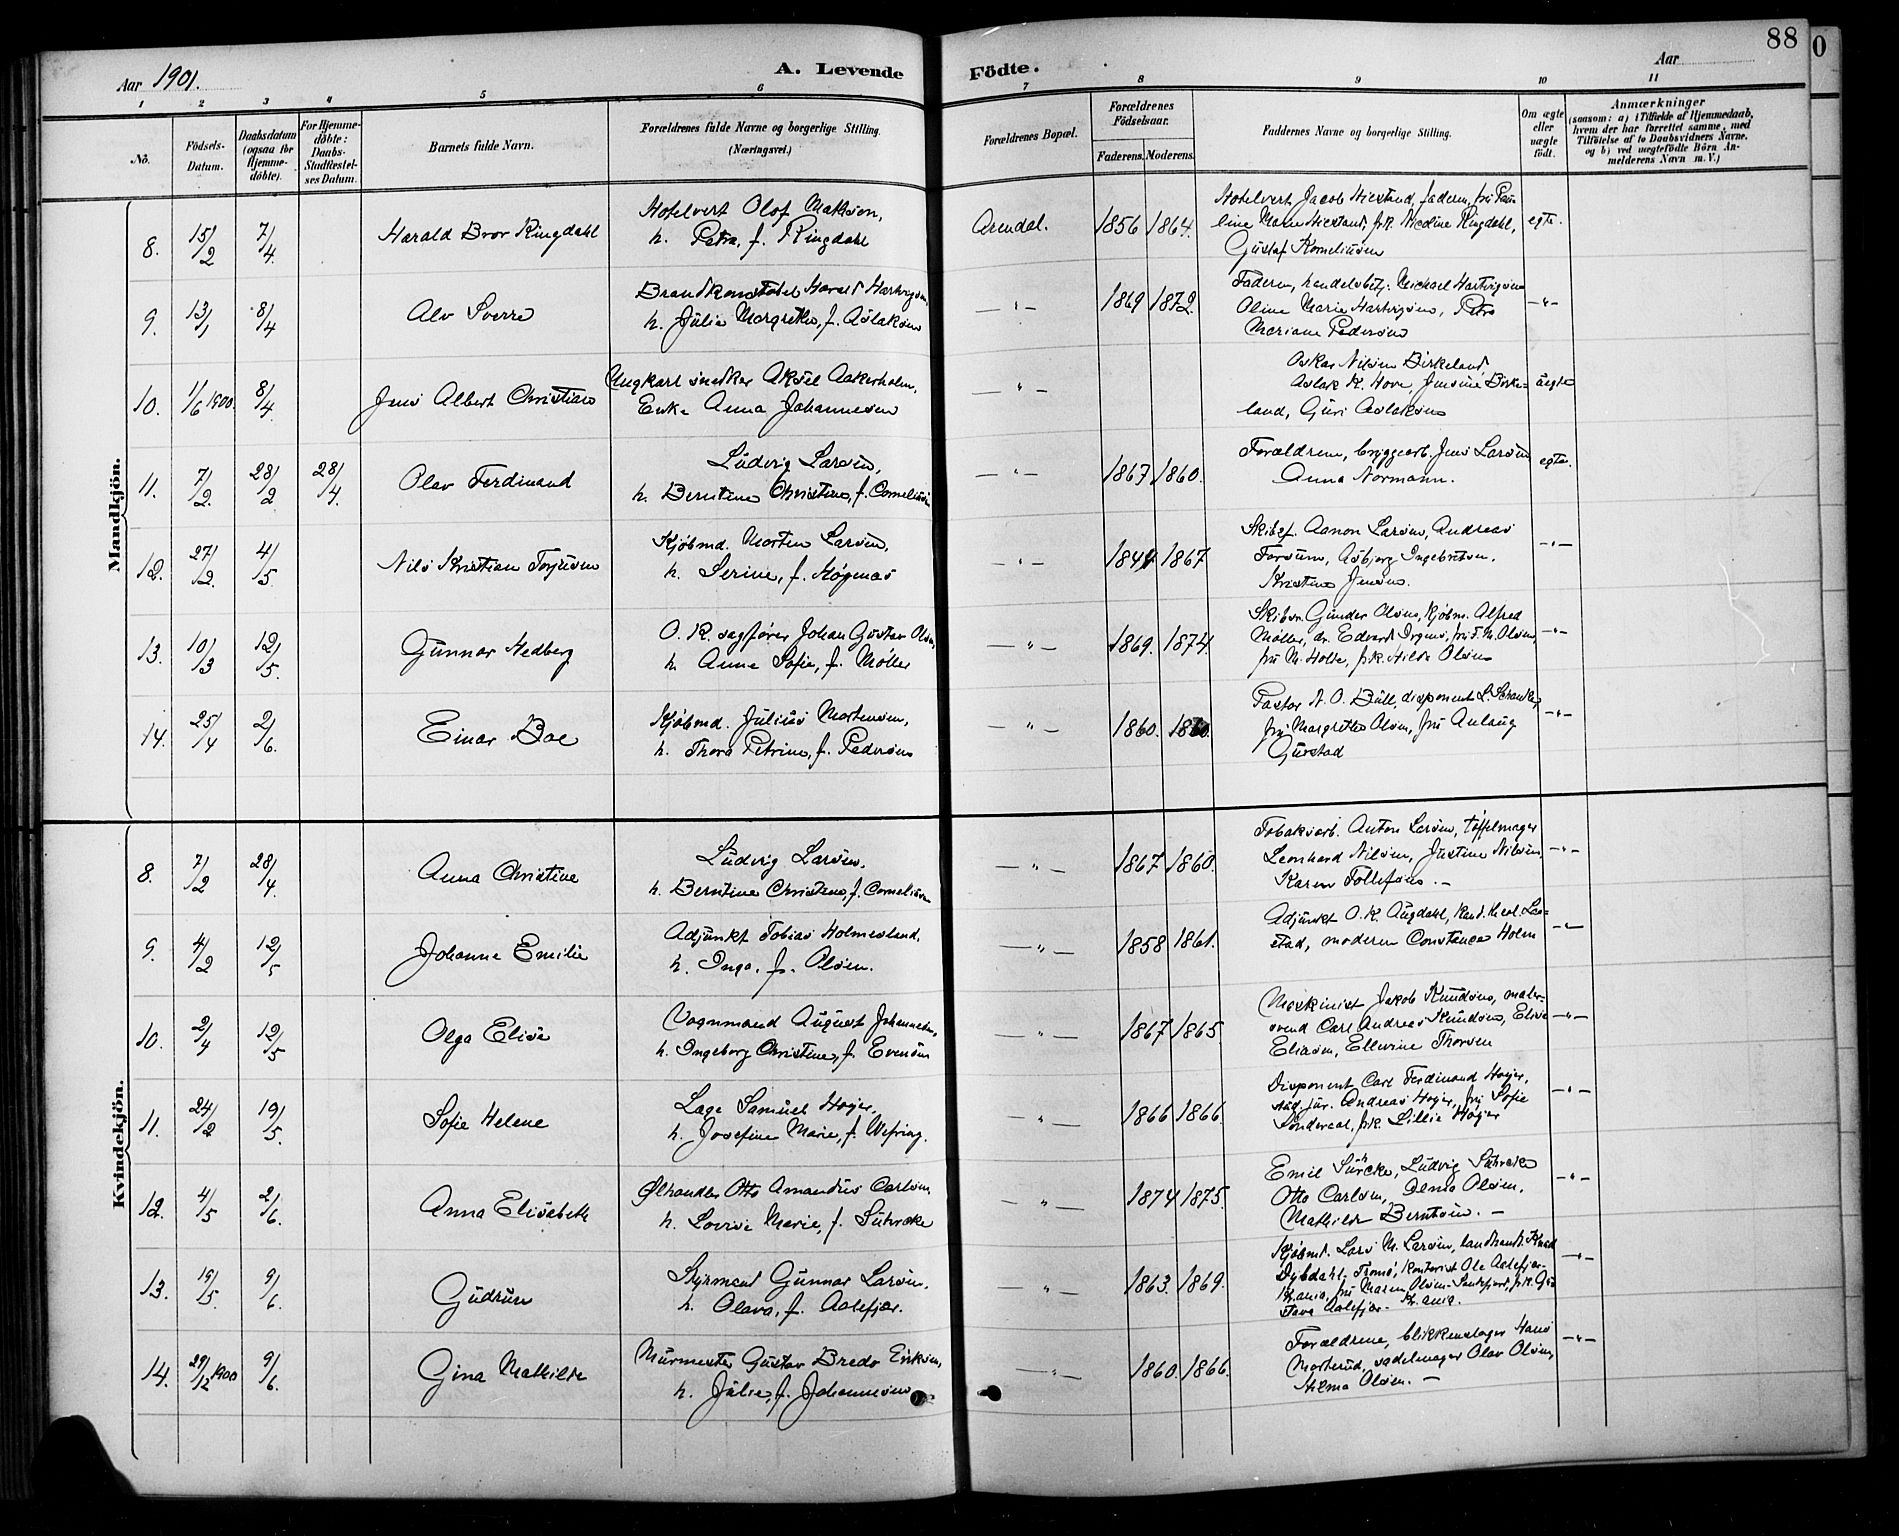 88
Aar 1901.
A. Levende Födte.
Aar
1 2 3 4 5 6 7 8 9 10 11
No.
Födsels-Datum.
Daabsdatum (ogsaa for Hjemme-döbte).
For Hjemme-döbte: Daabs-Stadfæstel-ses Datum.
Barnets fulde Navn.
Forældrenes fulde Navne og borgerlige Stilling.
(Næringsvei.)
Forældrenes Bopæl.
Forældrenes Födselsaar.
Faderens. Moderens.
Faddernes Navne og borgerlige Stilling.
Om ægte eller uægte födt.
Anmærkninger
(saasom: a) i Tilfælde af Hjemmedaab, hvem der har forrettet samme, med Tilföielse af to Daabsvidners Navne, og b) ved uægtefödte Börn An-melderens Navn m. V.)
Mandkjön.
8. 15/2 7/4 Harald Bror Ringdahl
Hotelvert Olof Matson,
h. Petra, f. Ringdahl
Arendal. 1856 1864.
Hotelvert Jacob Hiestand, faderen, fru Pau-
line Marie Hiestand, frk. Nicoline Ringdahl,
Gustaf Korneliusen
egte.
9. 13/1 8/4 Alv Sverre
Brandkonstabel Harald Hartvigsen,
h. Julie Margrethe, f. Aslaksen
— " — 1869 1872.
Faderen, handelsbetj. Michael Hartvigsen
Oline Marie Hartvigsen, Petra
Mariane Pedersen
— " —
10. 1/6 1900. 8/4 Jens Albert Christian
Ungkarl snedker Aksel Aakerholm,
Enke Anna Johannesen
" —
Oskar Nilsen Birkeland,
Aslak K. Hove, Jensine Birke-
land, Guri Aslaksen
uegte
11. 7/2. 28/2 28/4. Olav Ferdinand
Ludvig Larsen,
h. Berntine Christine, f. Corneliusen
— " — 1867 1860.
Forældrene, bryggearb. Jens Larsen
Anna Normann.
egte.
12. 27/2. 4/5 Nils Kristian Torjusen
Kjøbmd. Morten Larsen,
h. Serine, f. Høgenæs
— " — 1867
Skibsf. Aanon Larsen, Andreas
Torsum, Asbjørg Ingebretsen,
Kristine Jensen.
— " —
13. 10/3 12/5. Gunnar Hedberg
O. R. sagfører Johan Gustav Olsen,
h. Anne Sofie, f. Møller
— " — 1869. 1874.
Skibsr. Gunder Olsen, Kjøbm. Alfred
Møller, dr. Edvard Irgens, fru T. M. Olsen,
fru M. Holte, frk. Hilda Olsen
— " —
14. 25/4 2/6. Einar Boe
Kjøbmd. Julius Mortensen,
h. Thora Petrine, f. Pedersen
— " — 1860.
Pastor A. O. Bull, disponent L. Schanke,
fru Margrethe Olsen, fru Aulaug
Gurstad
— " —
Kvindekjön.
8. 7/2 28/4. Anna Christine
Ludvig Larsen.
h. Berntine Christine, f. Corneliusen
— " — 1867 1860.
Tobaksarb. Anton Larsen, tøffelmager
Leonhard Nilsen, Justine Nilsen,
Karen Tollefsen. —
— " —
9. 4/2 12/5 Johanne Emilie
Adjunkt Tobias Holmesland,
h. Inga, f. Olsen.
— " — 1858 1861.
Adjunkt O. K. Augdahl, kand. theol. Las-
stad, moderen Constance Holm
— " —
10. 2/4 12/5 Olga Elise
Vognmand August Johannesen,
h. Ingeborg Christine, f. Evensen
— " — 1867 1865.
Maskinist Jakob Knudsen, maler-
svend Carl Andreas Knudsen, Elise
Eliasen, Ellevine Thorsen
— " —
11. 24/2 19/5. Sofie Helene
Lage Samuel Høyer,
h. Josefine Marie, f. Wefring.
" — 1866 1866.
Disponent Carl Ferdinand Høyer,
stud. jur. Andreas Høyer, fru Sofie
Sønderaal, frk. Lillie Høyer
— " —
12. 4/5 2/6. Anna Elisabeth
Ølhandler Otto Amandus Carlsen,
h. Lovise Marie, f. Suhrcke
— " — 1874 1875.
Emil Suhrcke, Ludvig Suhrcke
Otto Carlsen, Olena Olsen,
Mathilde Berntsen. —
— " —
13. 19/5. 9/6. Gudrun
Styrmand Gunnar Larsen,
h. Olava, f. Aalefjær.
" — 1863. 1869.
Kjøbmd. Lars M. Larsen, landhandl. Knud
Dybdahl, Tromø, kontorist Ole Aalefjær
Kr.ania, fru Maren Olsen Sandefjord, frk. Gu-
stava Aalefjær Kr.ania.
— " —
14. 29/12 1900 9/6. Gina Mathilde
Murmester Gustav Bredo Eriksen,
h. Julie, f. Johannesen
— " — 1860. 1866.
Forældrene, blikkenslager Hans
Morterud, sadelmager Olav Olsen,
Hilma Olsen. —
— " —